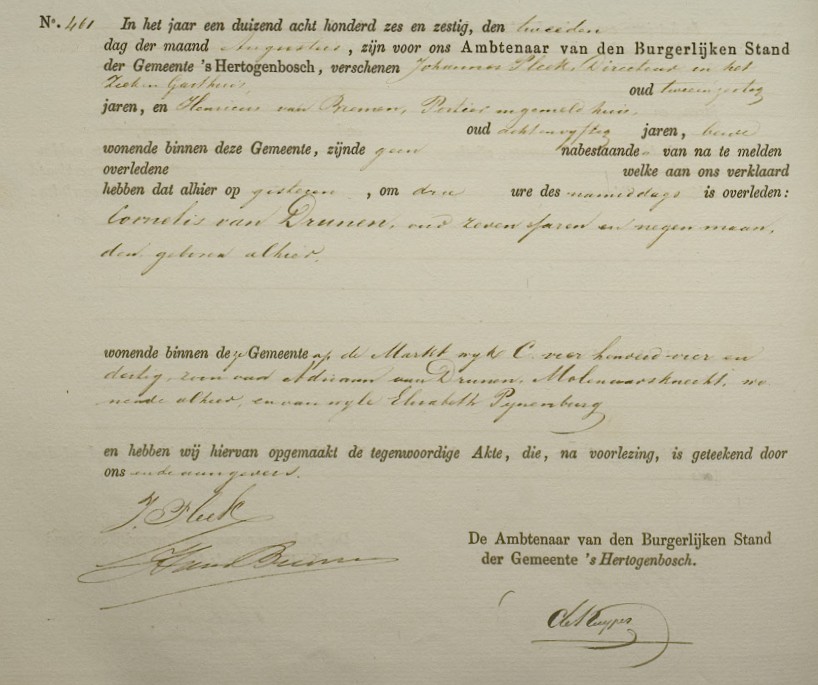 No. 461 In het jaar een duizend acht honderd zes en zestig, den tweeden
dag der maand Augustus, zijn voor ons Ambtenaar van den Burgerlijken Stand
der Gemeente 's Hertogenbosch, verschenen Johannes Fleek, Directeur in het
Zieken Gasthuis, oud tweeenzestig
jaren, en Henricus van Bremen, Portier in gemeld huis,
oud achtenvyftig jaren, beide
wonende binnen deze Gemeente, zijnde geen nabestaande van na te melden
overledene welke aan ons verklaard
hebben dat alhier op gisteren, om drie ure des namiddags is overleden:
Cornelis van Drunen, oud zeven jaren en negen maan,
den, geboren alhier,
wonende binnen deze Gemeente op de Markt wyk C. vier honderd vier en
dertig, zoon van Adriaan van Drunen, Molenaarsknecht, wo
nende alhier, en van wyle Elisabeth Pynenburg
en hebben wij hiervan opgemaakt de tegenwoordige Akte, die, na voorlezing, is geteekend door
ons en de aangevers.
J. Fleek
H van Bremen
De Ambtenaar van den Burgerlijken Stand
der Gemeente 's Hertogenbosch.
de Kuyper